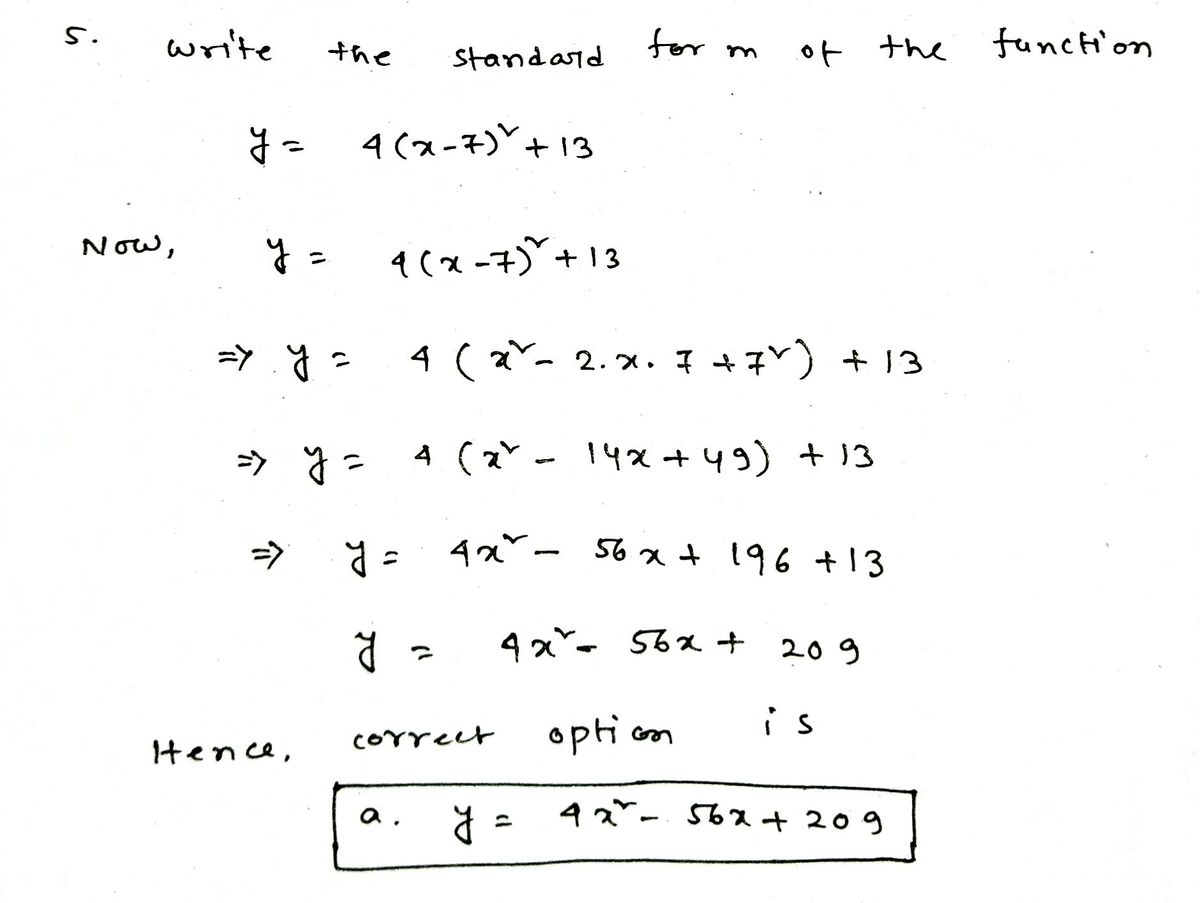 5. Write the standard form of the function
y = 4(x-7)² + 13
Now, y = 4(x-7)² + 13
=> y = 4 (x² - 2.x.7 + 7²) + 13
=> y = 4 (x² - 14x + 49) + 13
=> y = 4x² - 56x + 196 + 13
y = 4x² - 56x + 209
Hence, correct option is
a. y = 4x² - 56x + 209